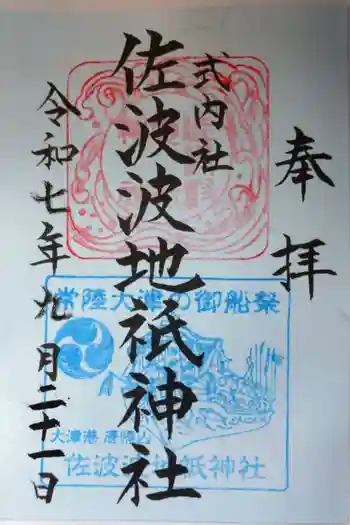 奉拝
式内社
佐波波地祇神社
令和七年九月二十一日
常陸大津の御船祭
大津港 唐帰山
佐波波地祇神社